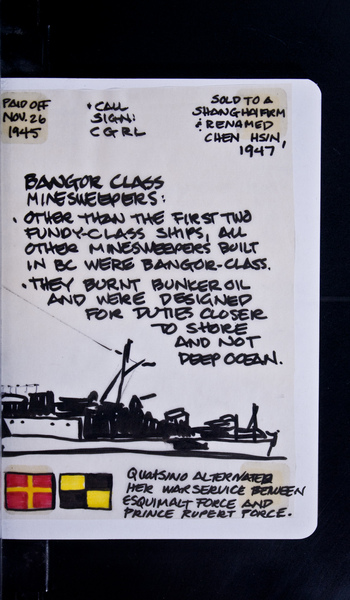 PAID OFF
NOV. 26
1945
• CALL
SIGN:
CGRL
SOLD TO A
SHANGHAI FIRM
& RENAMED
CHEN HSIN,
1947
BANGOR CLASS
MINESWEEPERS:
• OTHER THAN THE FIRST TWO
FUNDY-CLASS SHIPS, ALL
OTHER MINESWEEPERS BUILT
IN BC WERE BANGOR-CLASS.
• THEY BURNT BUNKER OIL
AND WERE DESIGNED
FOR DUTIES CLOSER
TO SHORE
AND NOT
DEEP OCEAN.
QUATSINO ALTERNATED
HER WAR SERVICE BETWEEN
ESQUIMALT FORCE AND
PRINCE RUPERT FORCE.